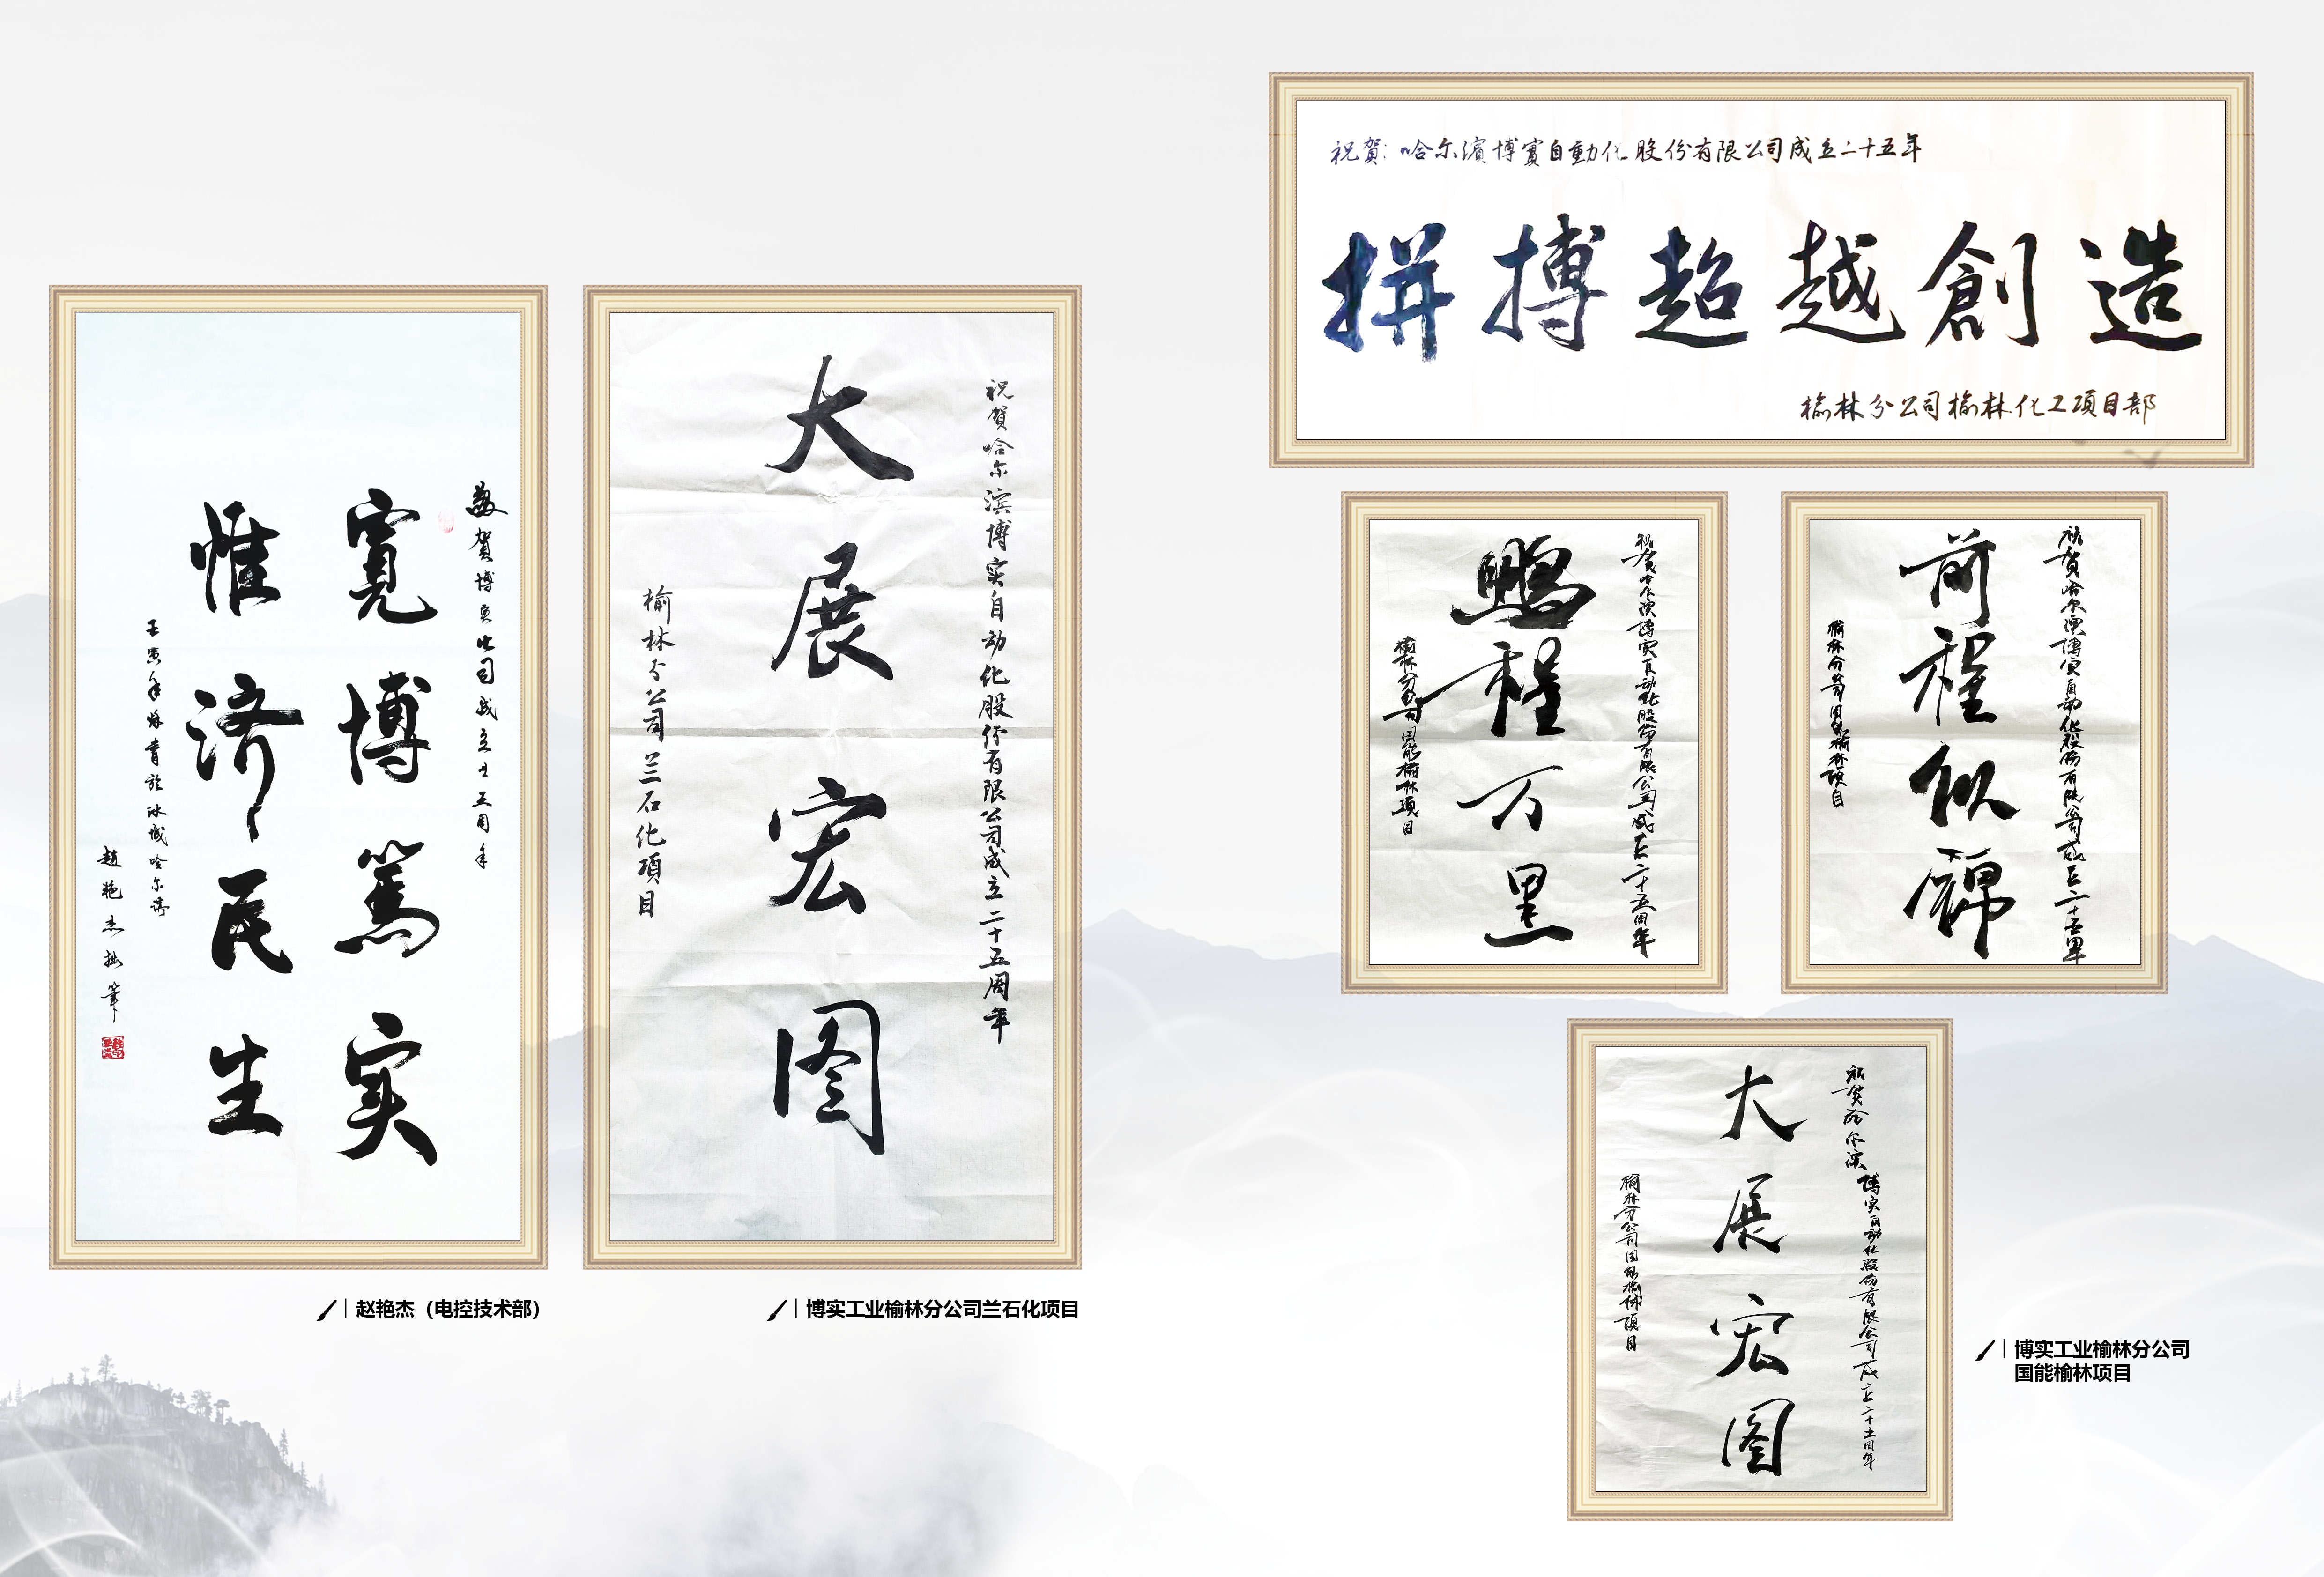 敬贺博实公司成立廿五周年
寬博篤实
惟济民生
壬寅年冬书於冰城哈尔滨
趙艳杰拙筆
赵艳杰（电控技术部）
祝贺哈尔滨博实自动化股份有限公司成立二十五周年
大展宏图
榆林分公司兰石化項目
博实工业榆林分公司兰石化项目
祝賀：哈尔濱博實自動化股份有限公司成立二十五年
拼搏超越創造
榆林分公司榆林化工項目部
祝贺哈尔滨博实自动化股份有限公司成立二十五周年
鹏程万里
榆林分公司国能榆林项目
祝贺哈尔滨博实自动化股份有限公司成立二十五周年
前程似錦
榆林分公司国能榆林项目
祝贺哈尔滨博实自动化股份有限公司成立二十五周年
大展宏图
榆林分公司国能榆林项目
博实工业榆林分公司
国能榆林项目